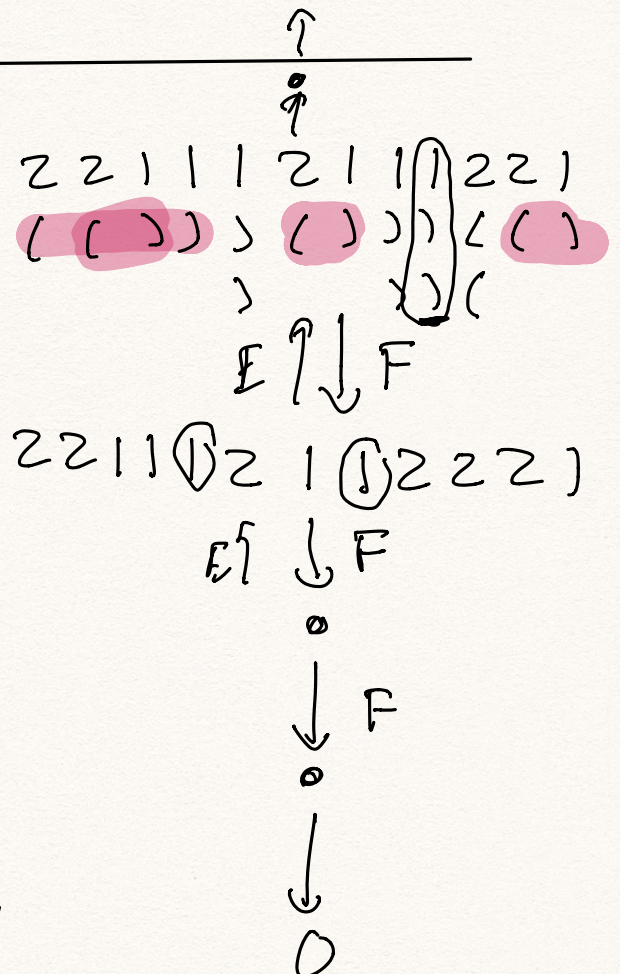 2 2 1 1 1 2 1 1 1 2 2 1
( ( ) ) ) ( ) ) ) ( ( )
) ) ) (
E F
2 2 1 1 1 2 1 1 2 2 2 1
E F
F
0